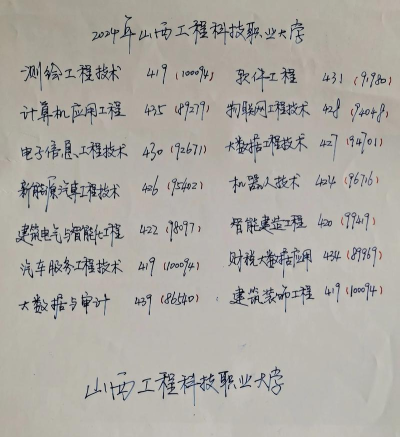 2024年山西工程科技职业大学
测绘工程技术 419 (100094) 软件工程 431 (91980)
计算机应用工程 435 (89279) 物联网工程技术 428 (94048)
电子信息工程技术 430 (92671) 大数据工程技术 427 (94701)
新能源汽车工程技术 426 (95402) 机器人技术 424 (96716)
建筑电气与智能化工程 422 (98097) 智能建造工程 420 (99419)
汽车服务工程技术 419 (100094) 财税大数据应用 434 (89969)
大数据与审计 439 (86540) 建筑装饰工程 419 (100094)
山西工程科技职业大学